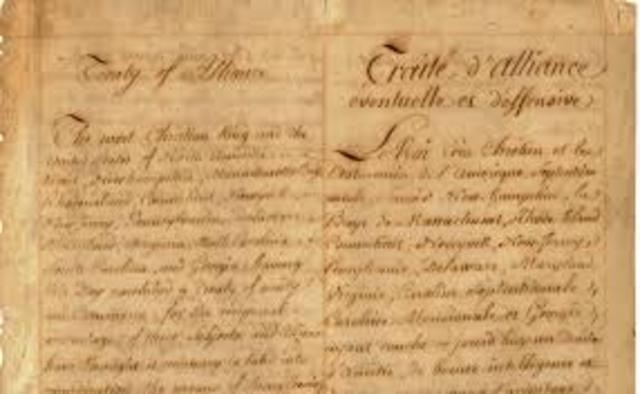 Treaty of Alliance
The most Christian King and the
United States of North America
Newhampshire, Massachusetts Bay
Connecticut, Newyork
New Jersey, Pennsylvania, Delaware
Maryland, Virginia, North Carolina
South Carolina, and Georgia having
this Day concluded a Treaty of amity
and Commerce, for the reciprocal
advantage of their Subjects and Citizens
have thought it necessary to take into
consideration the means of
Traité d'alliance
eventuelle et deffensive
Le Roi très Chrétien et les
Etats unis de l'Amerique Septentrio
New hampshire, la
Baye de Massachusset, Rhode Island
Connecticut, Newyork, New Jersey
Pensylvanie, Delaware, Maryland
Virginie, Caroline Septentrionale
Caroline Meridionale et Georgie
ayant conclu ce jourd'huy un Traité
d'amitié, de bonne intelligence et